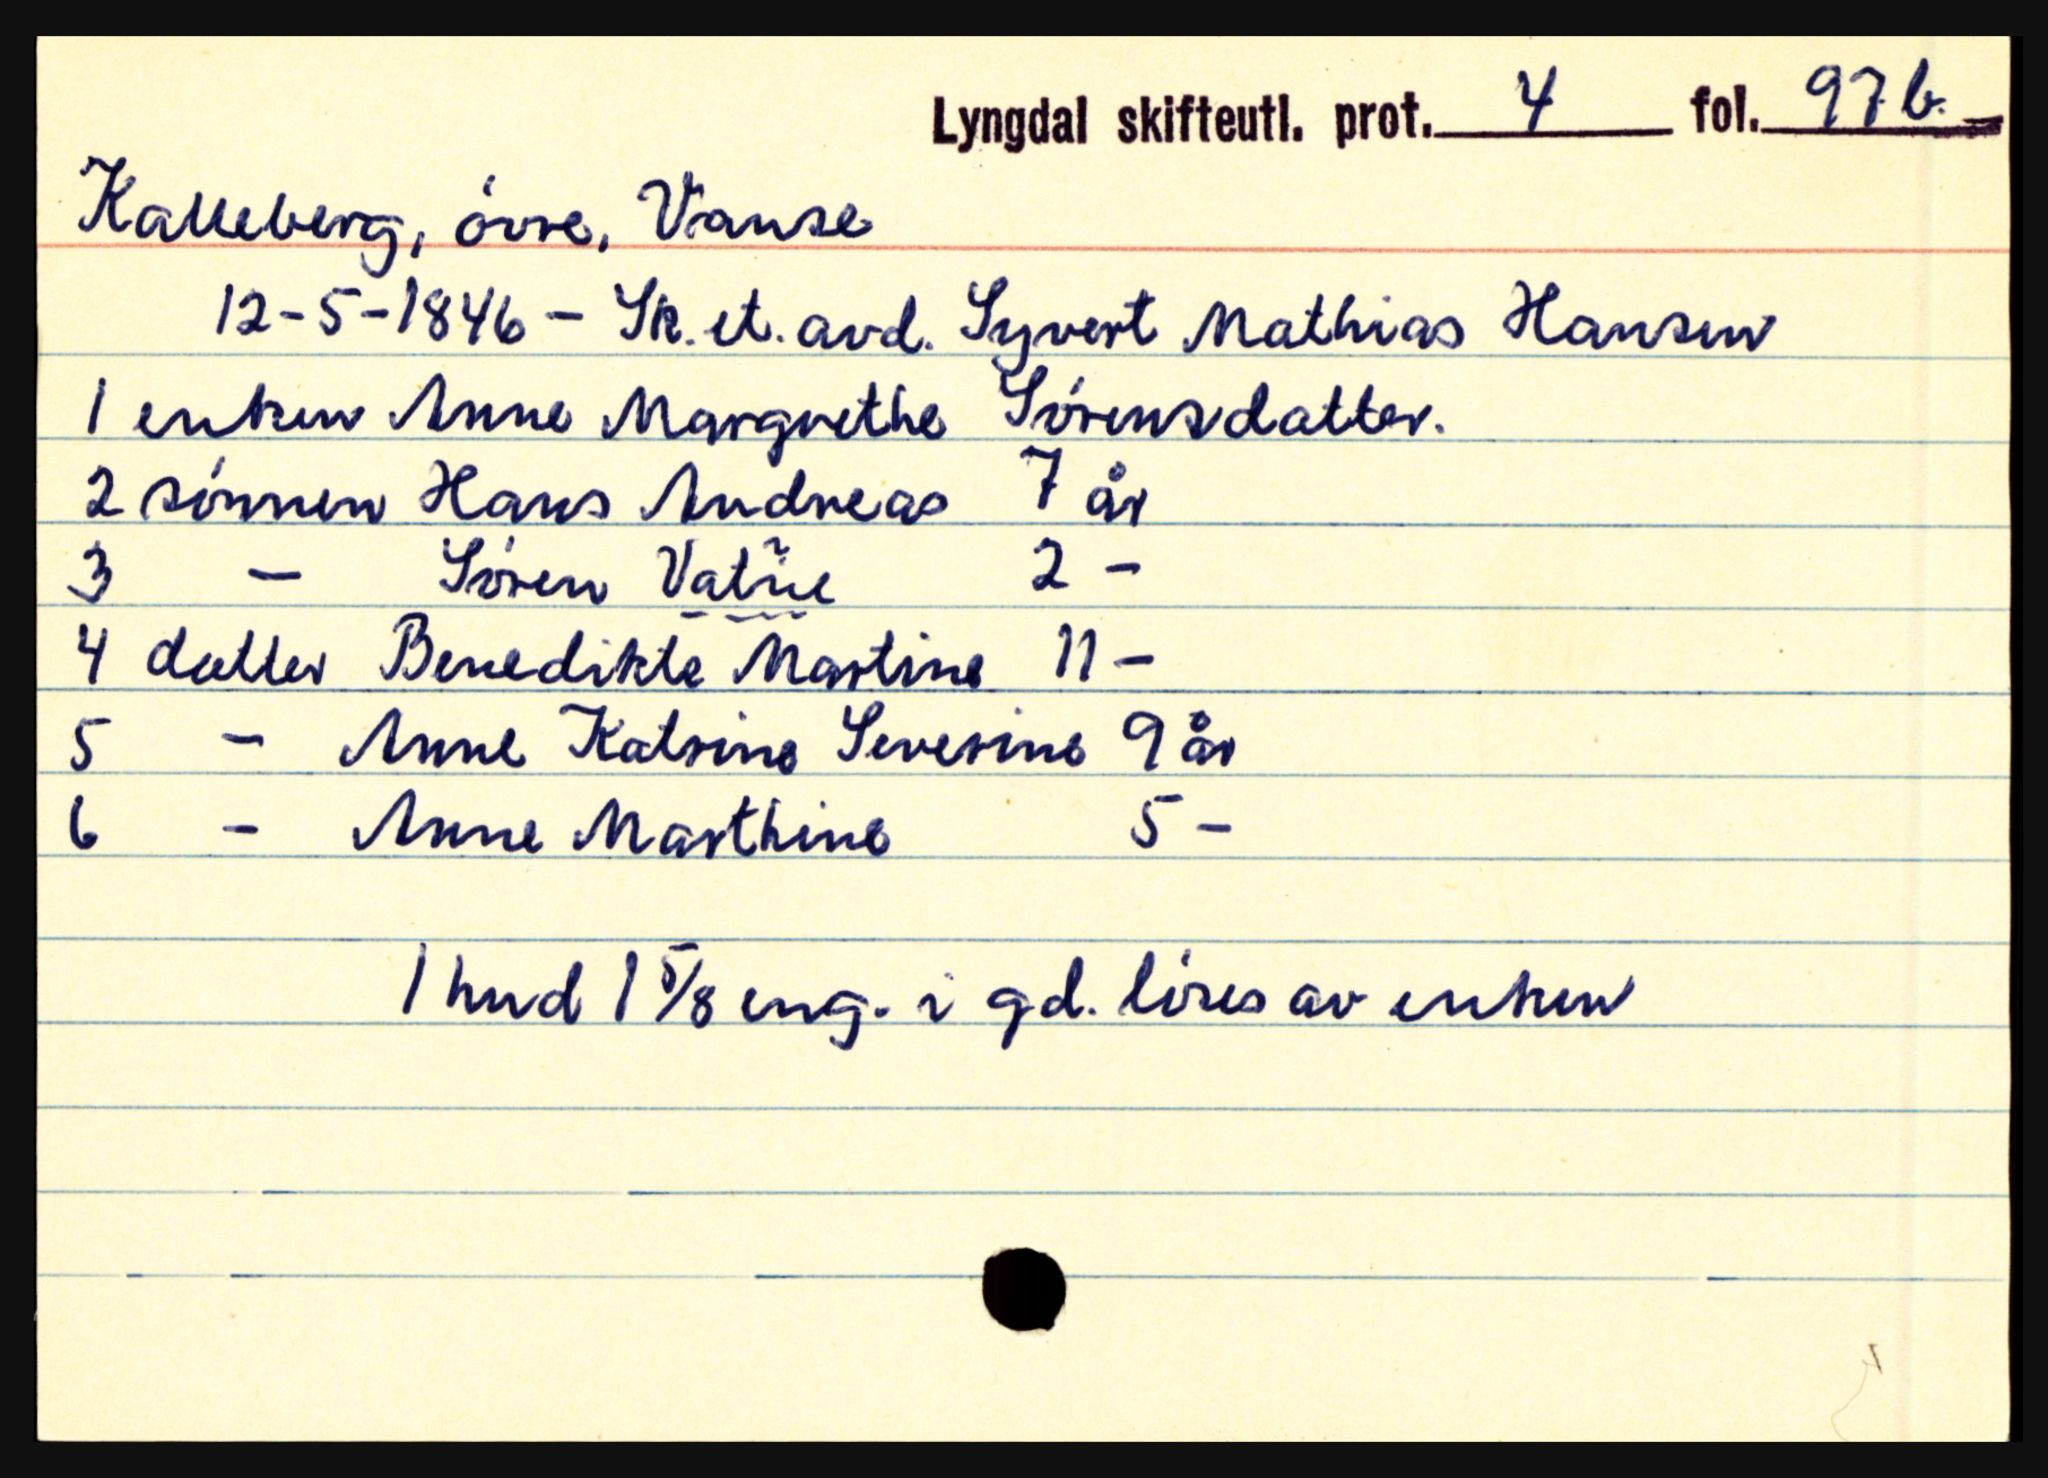 Lyngdal skifteutl. prot. 4 fol. 97b.
Kalleberg, övre, Vanse
12-5-1846 - Sk. et. avd. Syvert Mathias Hansen
1 enken Anne Margrethe Sörensdatter.
2 sönnen Hans Andreas 7 år
3 - Sören 2 -
4 datter Benedikte Martine 11 -
5 - Anne Katrine Severine 9 år
6 - Anne Marthine 5 -
1 hud 1 5/8 eng. i gd. löses av enken